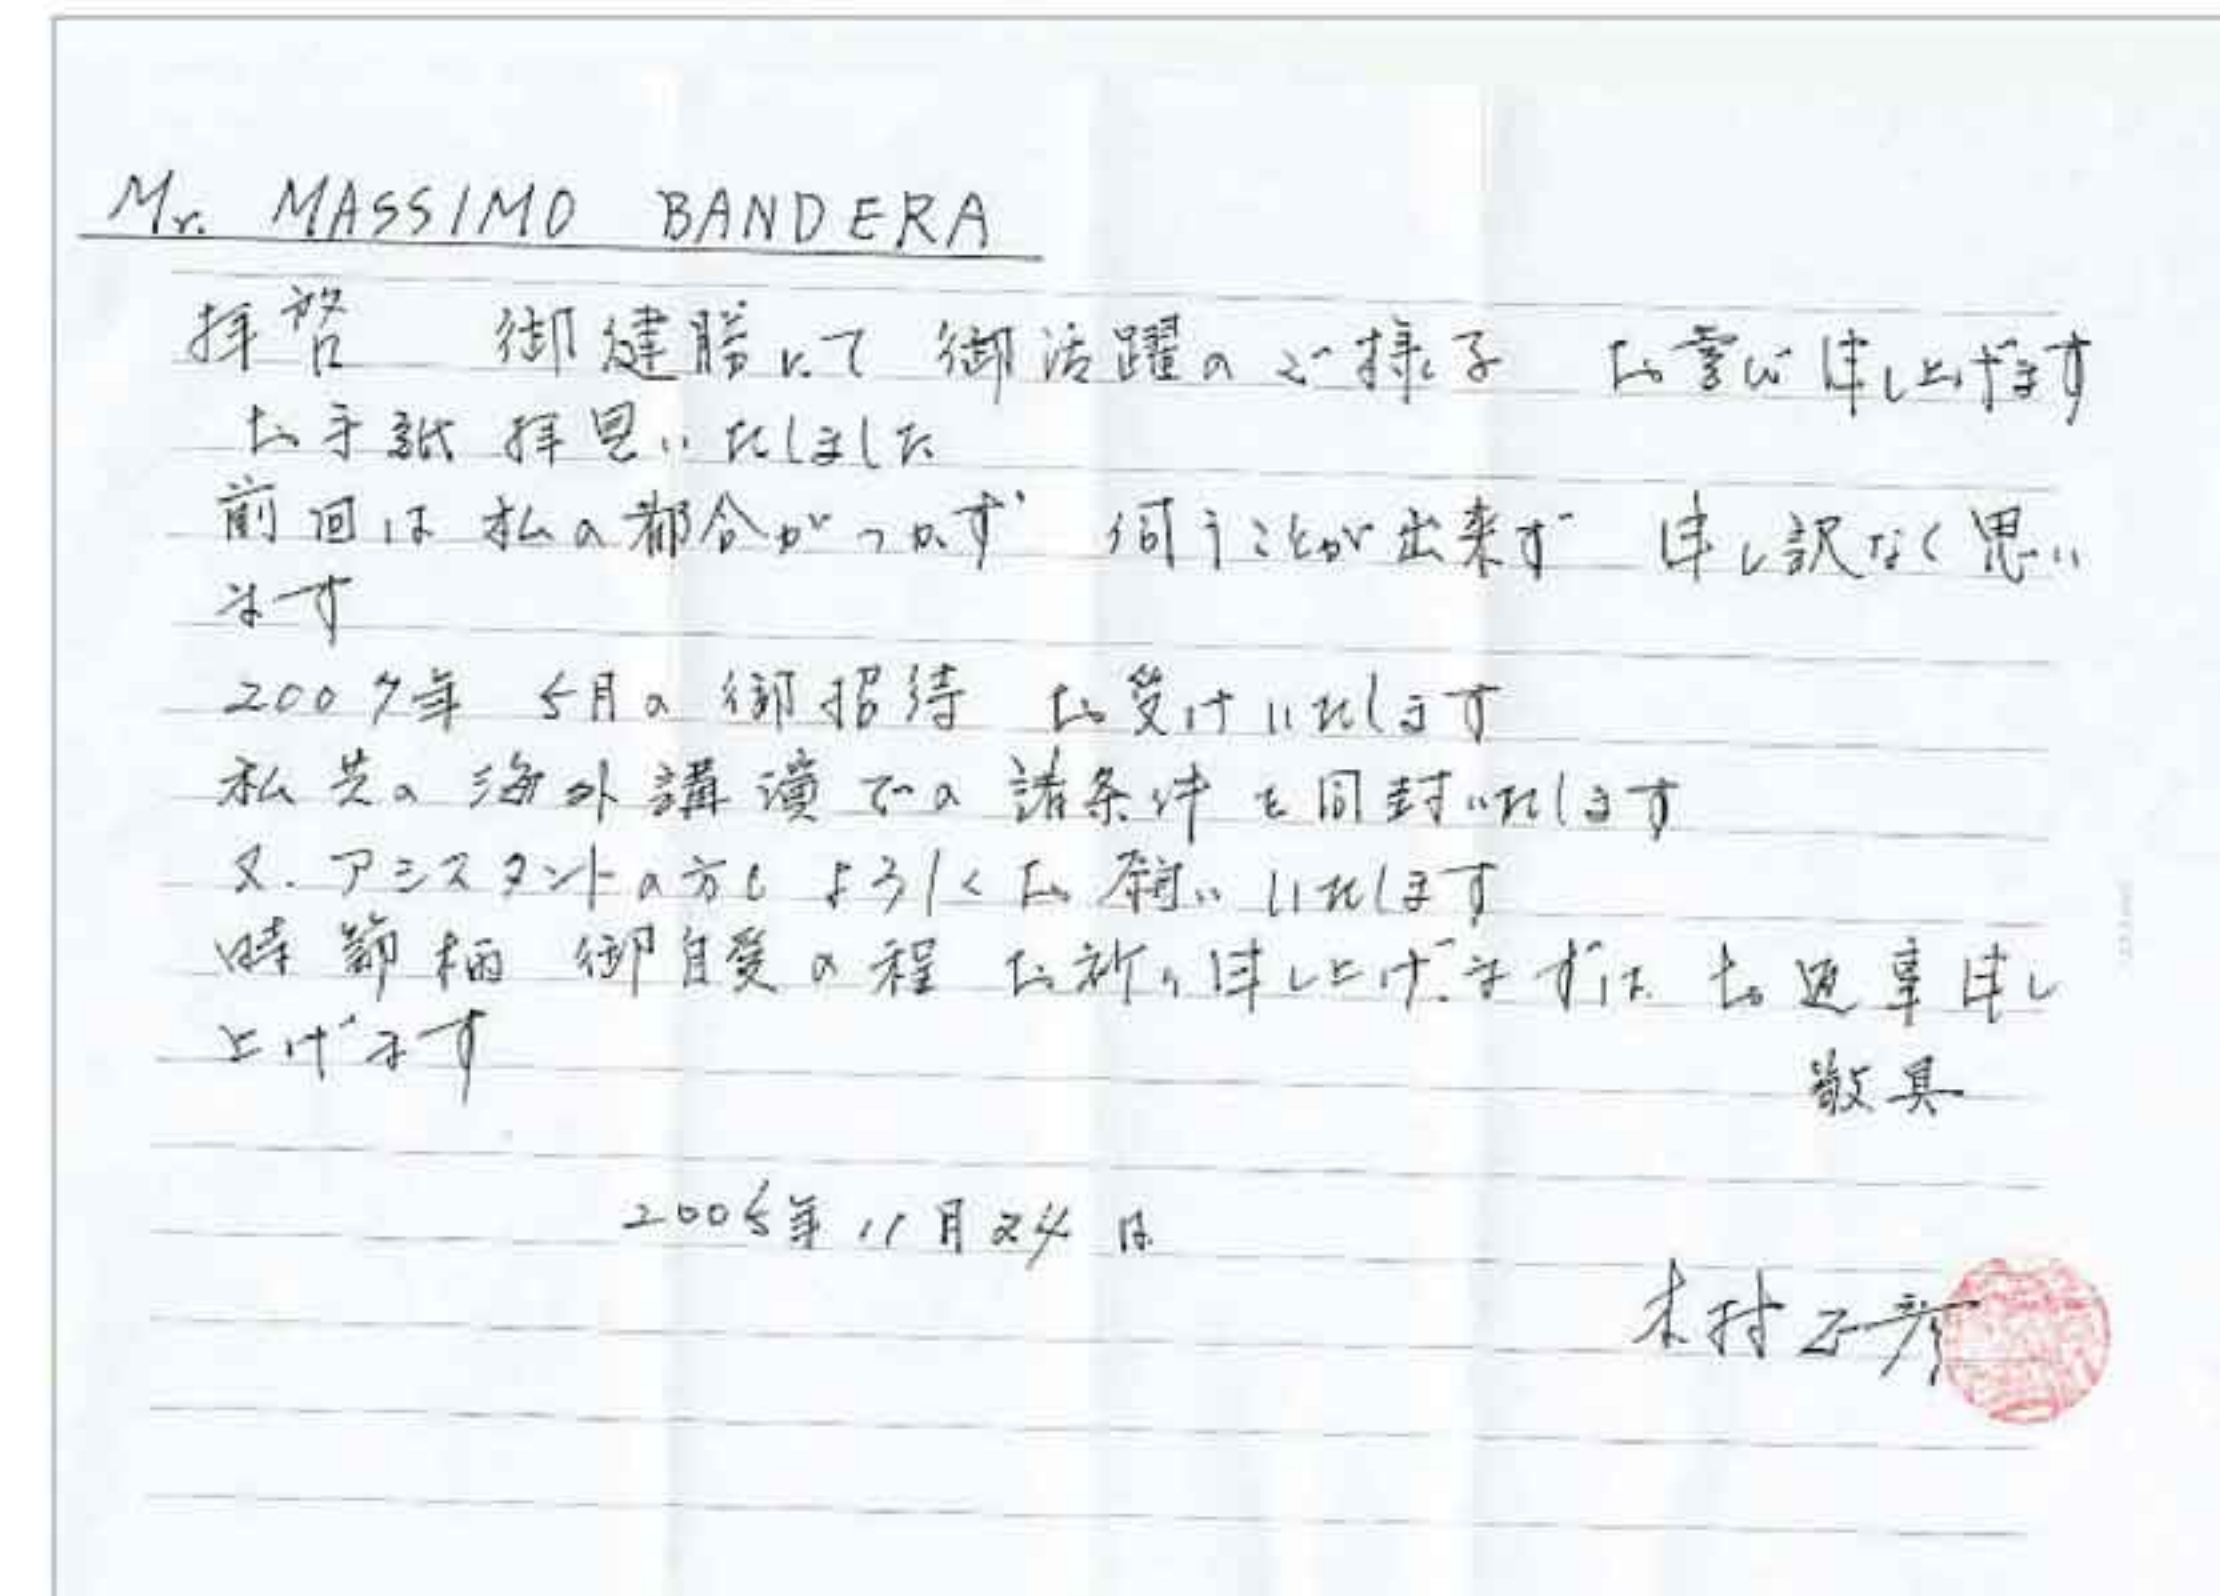 Mr. MASSIMO BANDERA
拝啓 御健勝にて 御活躍のご様子 お喜び申し上げます
お手紙拝見いたしました
前回は私の都合がつかず 伺うことが出来ず 申し訳なく思い
ます
2007年 5月の御招待 お受けいたします
私共の海外講演での諸条件を同封いたします
又.アシスタントの方もよろしくお願いいたします
時節柄 御自愛の程 お祈り申し上げ まずは お返事申し
上げます
敬具
2005年11月24日
木村正彦